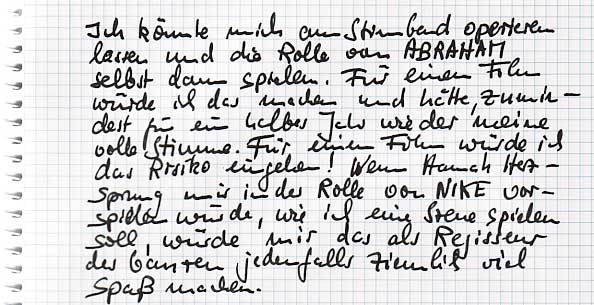 Ich könnte mich am Stimmband operieren
lassen und die Rolle von ABRAHAM
selbst dann spielen. Für einen Film
würde ich das machen und hätte, zumin-
dest für ein halbes Jahr wieder meine
volle Stimme. Für einen Film würde ich
das Risiko eingehen! Wenn Hannah Herz-
sprung mir in der Rolle von NIKE vor-
spielen würde, wie ich eine Szene spielen
soll, würde mir das als Regisseur
des Ganzen jedenfalls ziemlich viel
Spaß machen.